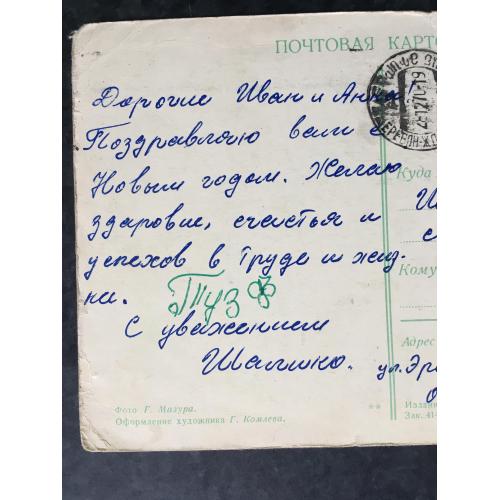 ПОЧТОВАЯ КАРТО
Дорогие Иван и Анна!
Поздравляю вам с
Новым годом. Желаю
здоровие, счастья и
успехов в труде и жиз-
ни.
Туз
С уважением
Шалико.
Куда
Ш
с
Кому
Адрес
ул. Эр
О
Фото Г. Мазура.
Оформление художника Г. Комлева.
**
Издани
Зак. 41-